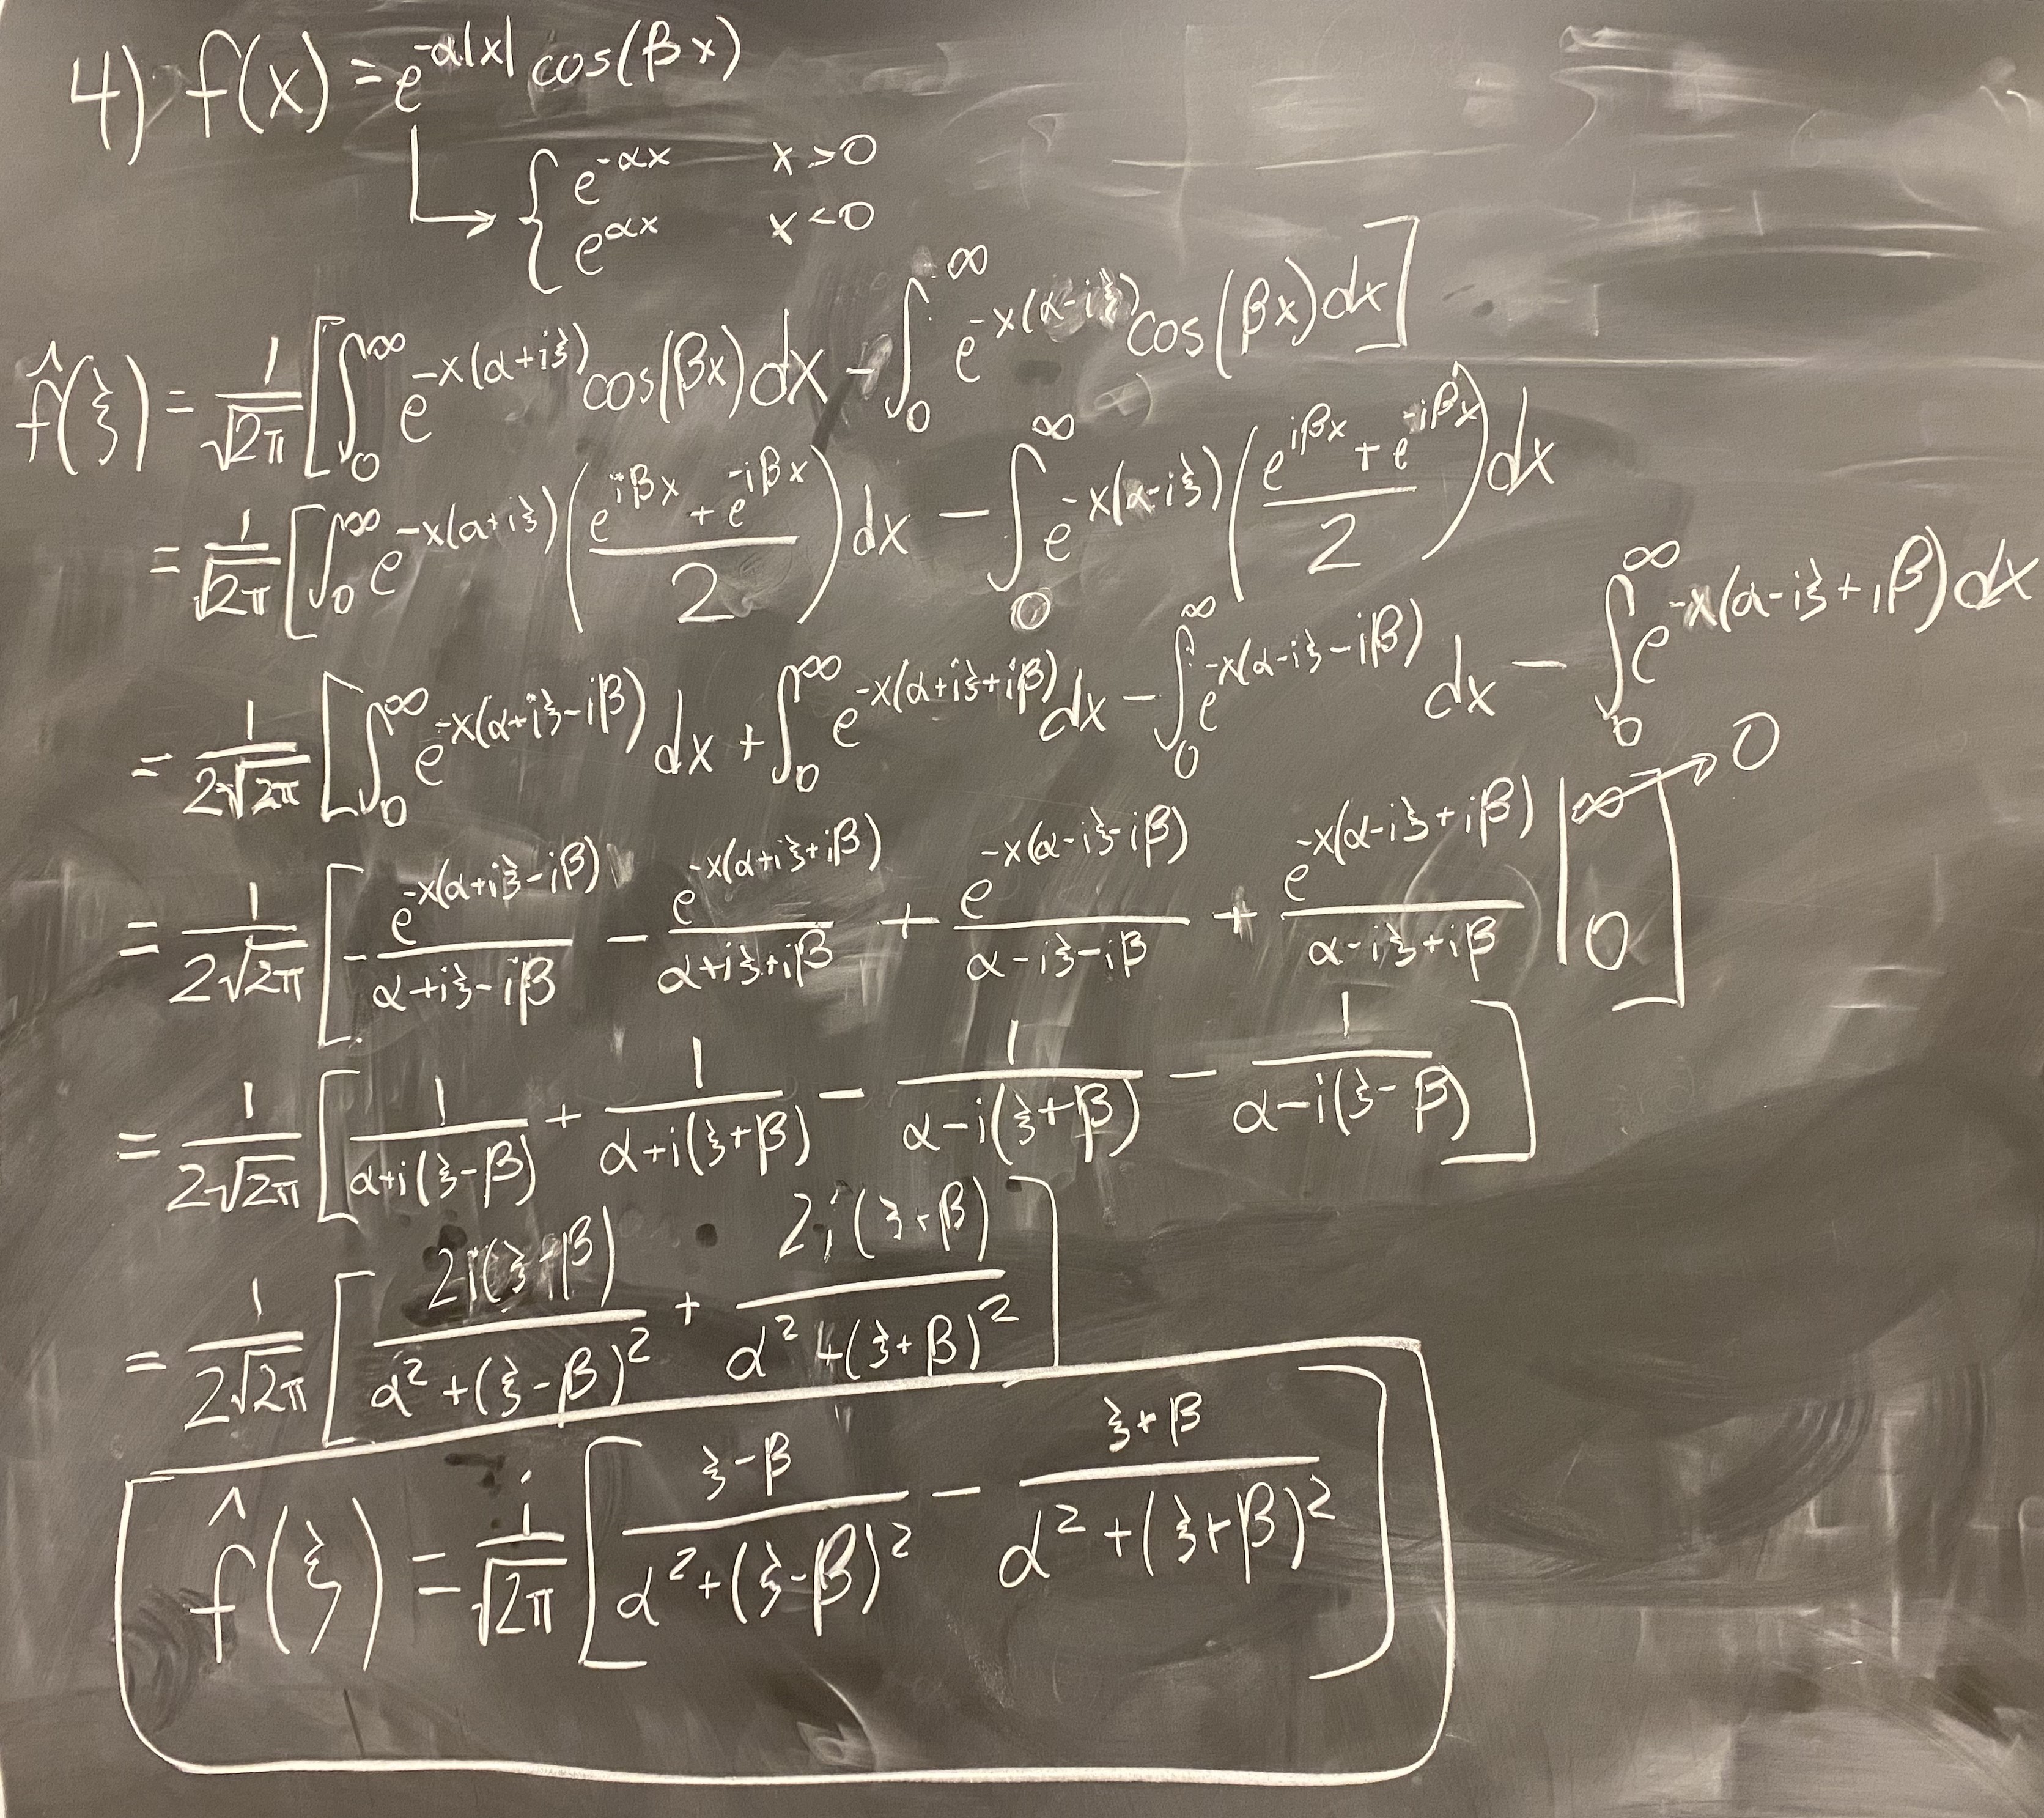 4) f(x) = e^{-α|x|} cos(βx)
→ { e^{-αx} x>0
e^{αx} x<0
f̂(ξ) = 1/√2π [∫_0^∞ e^{-x(α+iξ)} cos(βx) dx - ∫_0^∞ e^{-x(α-iξ)} cos(βx) dx]
= 1/√2π [∫_0^∞ e^{-x(α+iξ)} ((e^{iβx} + e^{-iβx})/2) dx - ∫_0^∞ e^{-x(α-iξ)} ((e^{iβx} + e^{-iβx})/2) dx
= 1/2√2π [∫_0^∞ e^{-x(α+iξ-iβ)} dx + ∫_0^∞ e^{-x(α+iξ+iβ)} dx - ∫_0^∞ e^{-x(α-iξ-iβ)} dx - ∫_0^∞ e^{-x(α-iξ+iβ)} dx
= 1/2√2π [- e^{-x(α+iξ-iβ)}/(α+iξ-iβ) - e^{-x(α+iξ+iβ)}/(α+iξ+iβ) + e^{-x(α-iξ-iβ)}/(α-iξ-iβ) + e^{-x(α-iξ+iβ)}/(α-iξ+iβ) |_0^∞ → 0 ]
= 1/2√2π [1/(α+i(ξ-β)) + 1/(α+i(ξ+β)) - 1/(α-i(ξ+β)) - 1/(α-i(ξ-β))]
= 1/2√2π [2i(ξ-β)/(α²+(ξ-β)²) + 2i(ξ+β)/(α²+(ξ+β)²)]
f̂(ξ) = i/√2π [(ξ-β)/(α²+(ξ-β)²) - (ξ+β)/(α²+(ξ+β)²)]